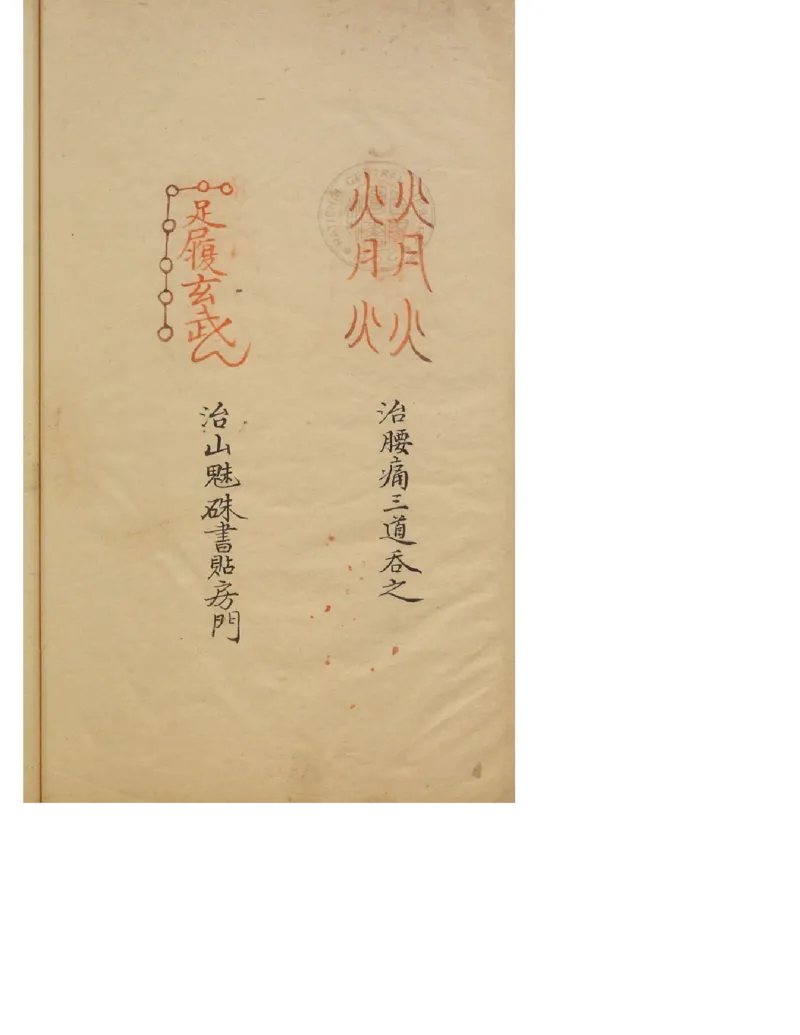 火火
月月
火火
治腰痛三道吞之
足履玄武
治山魅硃書貼房門
NATIONAL CENTRAL